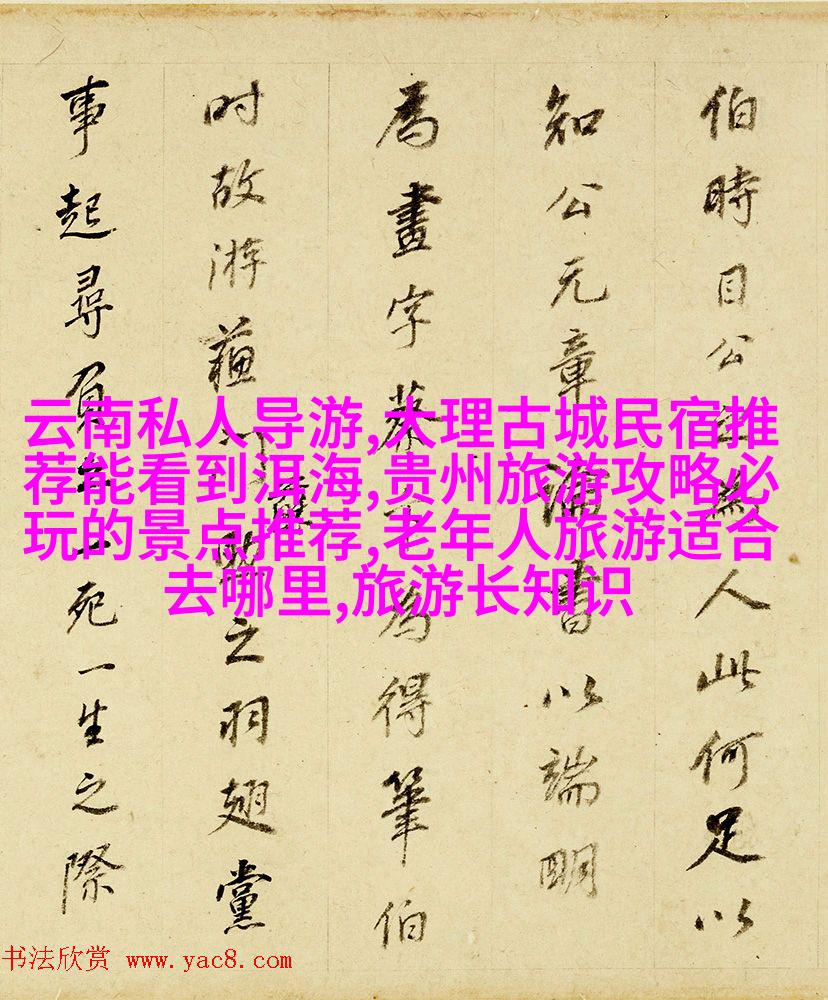 伯時目公為人此何足以
知公元章書以端明
為畫字蔡為得筆伯
时故游蘓之羽翅黨
事起尋負一死一生之際
云南私人导游,大理古城民宿推
荐能看到洱海,贵州旅游攻略必
玩的景点推荐,老年人旅游适合
去哪里,旅游长知识
书法欣赏 www.yac8.com